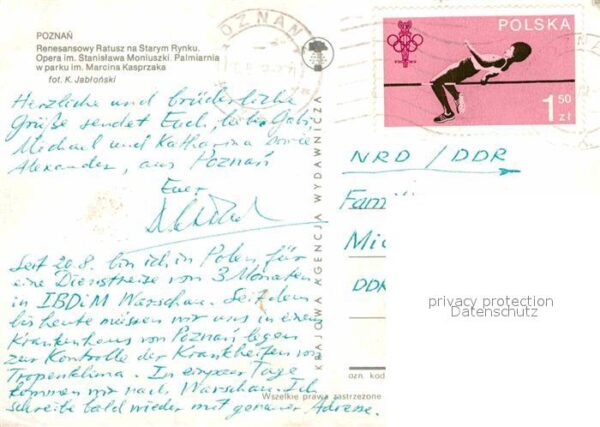 POZNAŃ
Renesansowy Ratusz na Starym Rynku.
Opera im. Stanisława Moniuszki. Palmiarnia
w parku im. Marcina Kasprzaka
fot. K. Jabłoński
POZNAŃ
POLSKA
1 50 zł
Herzliche und brüderliche
Grüße sendet Euch, liebe Gabi
Michael und Katharina sowie
Alexander, aus Poznań
Euer
Seit 20.8. bin ich in Polen für
eine Dienstreise von 3 Monaten
in IBDiM Warschau. Seitdem
bis heute müssen wir uns in einem
Krankenhaus von Poznań legen
zur Kontrolle der Krankheiten von
Tropenklima. In einpaar Tage
kommen wir nach Warschau. Ich
schreibe bald wieder mit genauer Adresse.
KRAJOWA AGENCJA WYDAWNICZA
NRD / DDR
Fam
Mic
DDR
privacy protection
Datenschutz
ozn. kod
Wszelkie prawa zastrzeżone